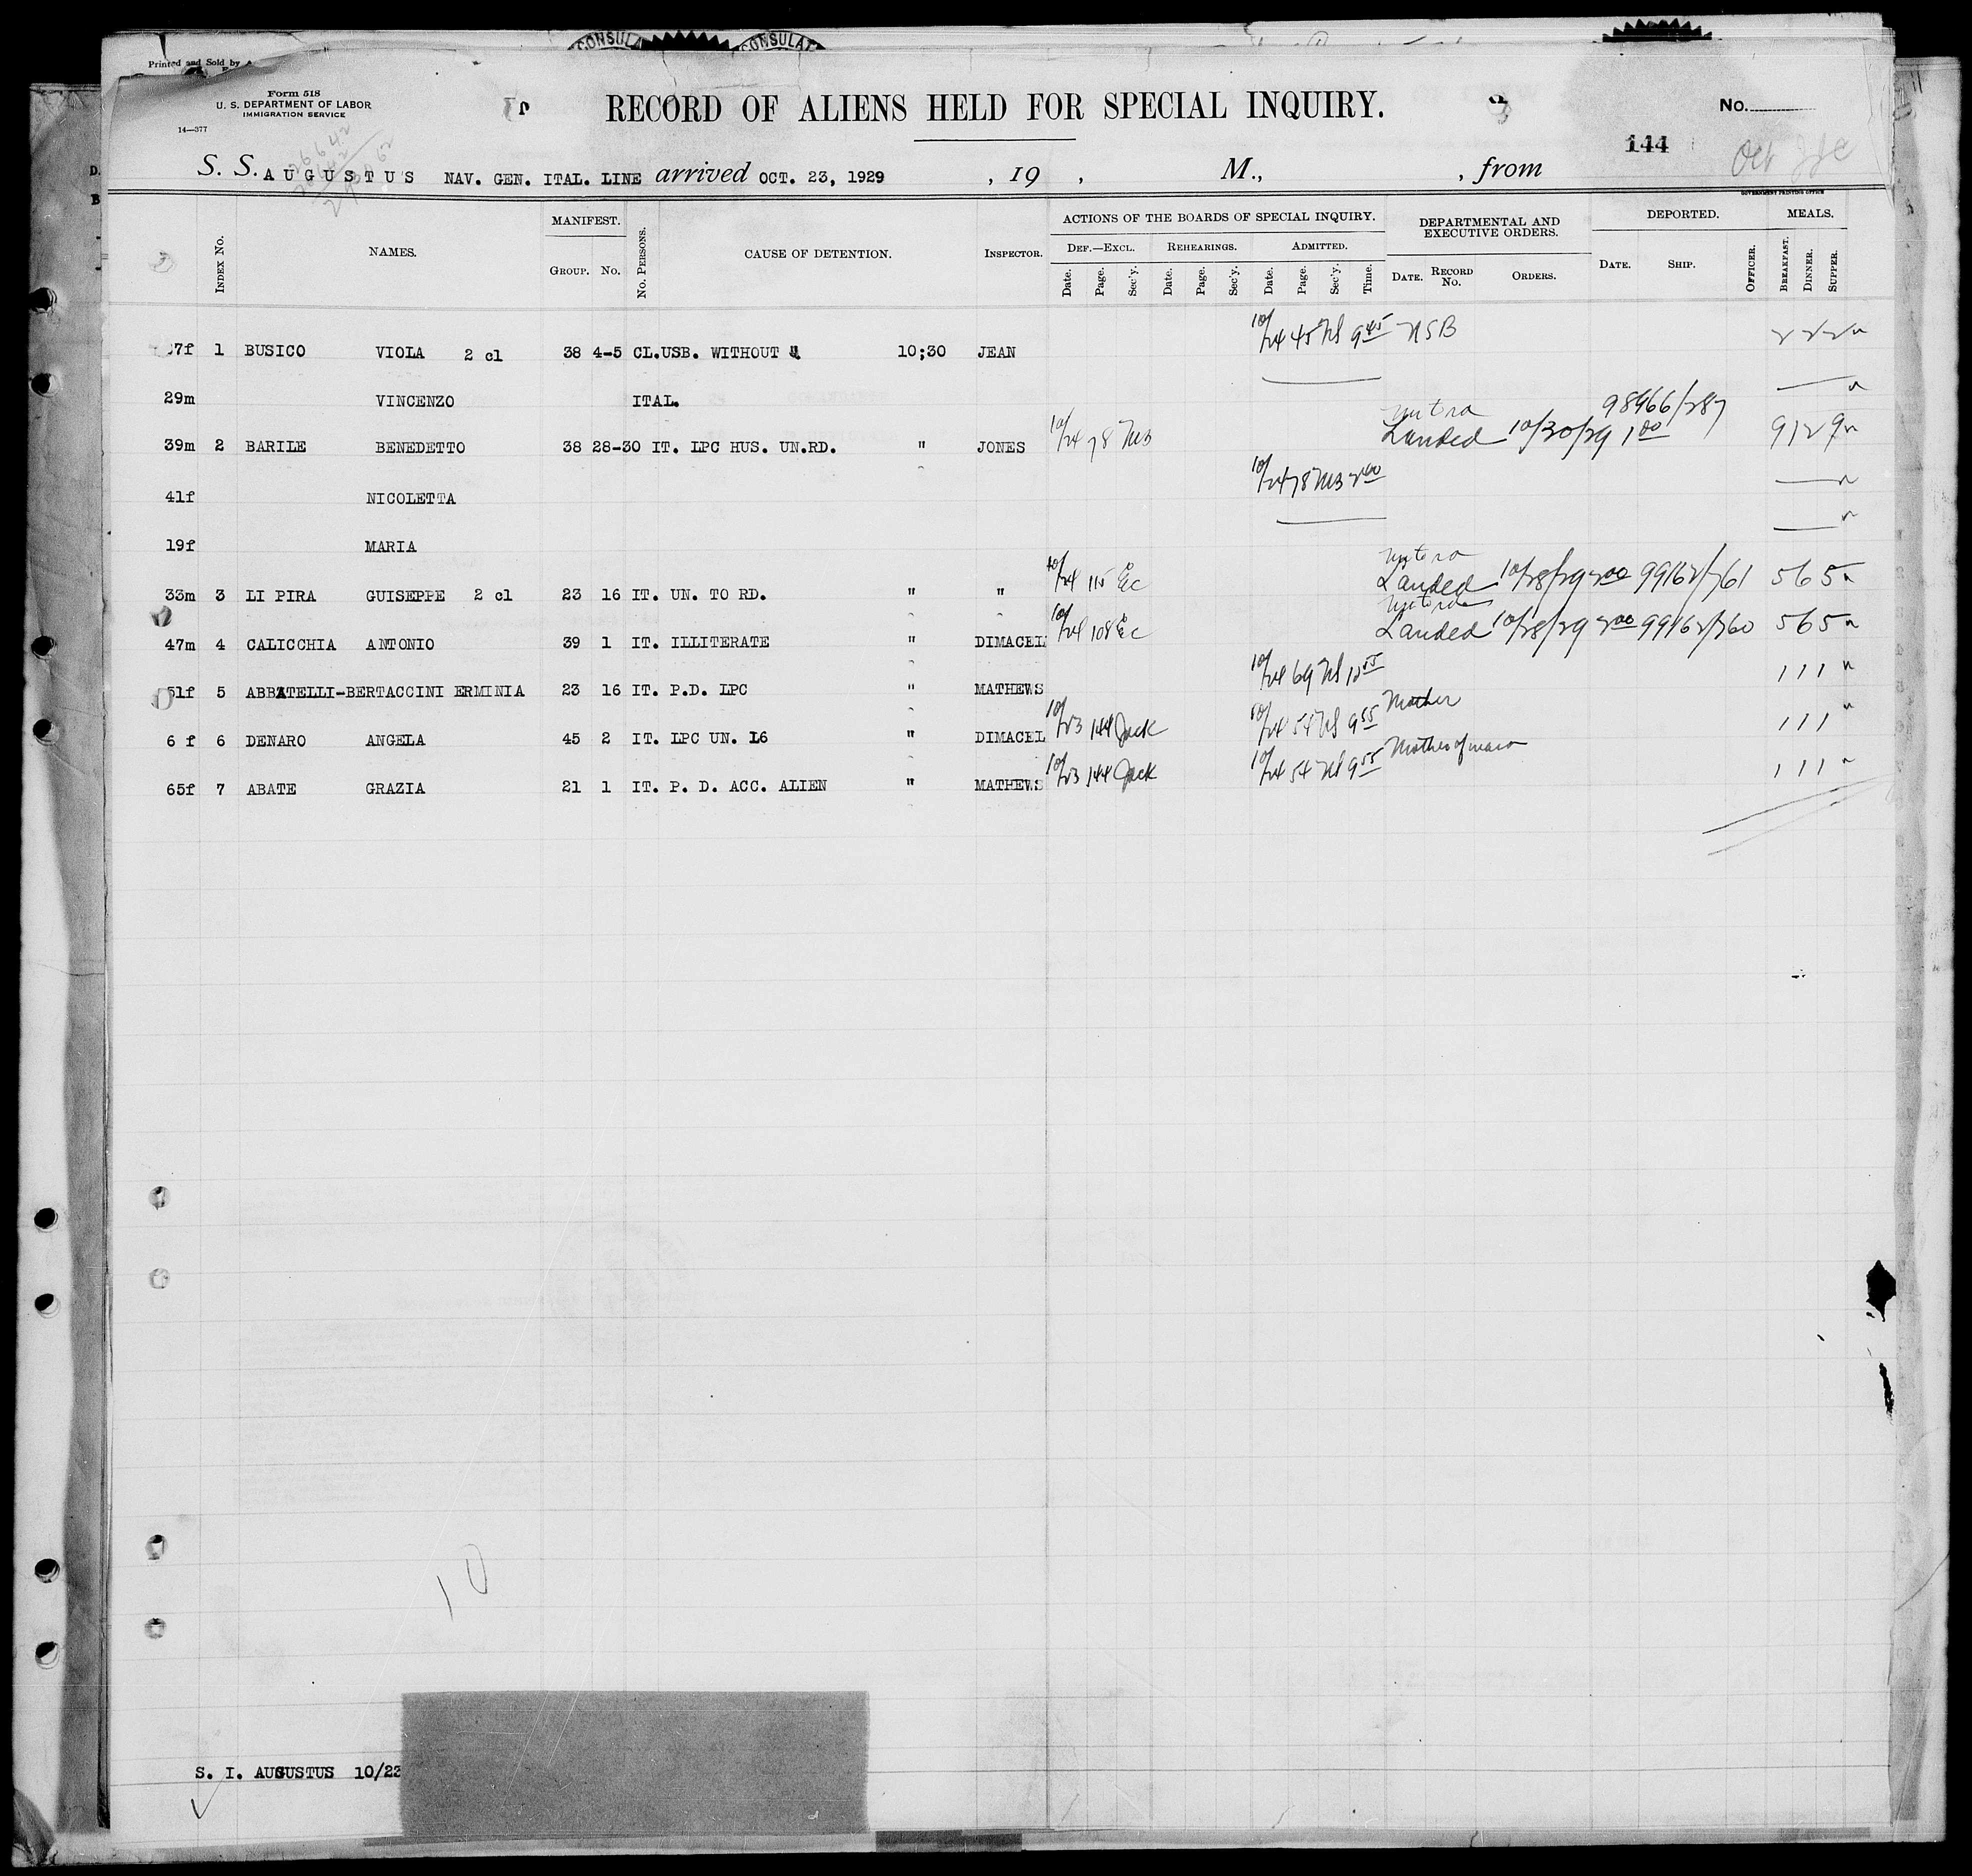 CONSULA CONSULAT
Printed and Sold by
Form 518
U. S. DEPARTMENT OF LABOR
IMMIGRATION SERVICE
14—377
RECORD OF ALIENS HELD FOR SPECIAL INQUIRY.
No.
144
S. S. AUGUSTUS NAV. GEN. ITAL. LINE arrived OCT. 23, 1929 , 19 , M., , from
GOVERNMENT PRINTING OFFICE
INDEX NO. NAMES. MANIFEST. GROUP. NO. NO. PERSONS. CAUSE OF DETENTION. INSPECTOR. ACTIONS OF THE BOARDS OF SPECIAL INQUIRY. DEPARTMENTAL AND EXECUTIVE ORDERS. DEPORTED. MEALS.
DEF.—EXCL. REHEARINGS. ADMITTED.
Date. Page. Sec'y. Date. Page. Sec'y. Date. Page. Sec'y. Time. DATE. RECORD NO. ORDERS. DATE. SHIP. OFFICER. BREAKFAST. DINNER. SUPPER.
7f 1 BUSICO VIOLA 2 cl 38 4-5 CL.USB. WITHOUT 10;30 JEAN 10/24 45 9 45 NSB 2 2 2
29m VINCENZO ITAL.
98966/287
39m 2 BARILE BENEDETTO 38 28-30 IT. LPC HUS. UN.RD. " JONES 10/24 78 MB Landed 10/30/29 1 00 9 12 9
41f NICOLETTA 10/24 78 MB 2 00
19f MARIA
33m 3 LI PIRA GUISEPPE 2 cl 23 16 IT. UN. TO RD. " " 10/24 115 Ec Landed 10/28/29 2 00 99162/761 5 6 5
47m 4 CALICCHIA ANTONIO 39 1 IT. ILLITERATE " DIMACEL 10/24 108 Ec Landed 10/28/29 2 00 99162/760 5 6 5
51f 5 ABBATELLI-BERTACCINI ERMINIA 23 16 IT. P.D. LPC " MATHEWS 10/24 69 1 1 1
6 f 6 DENARO ANGELA 45 2 IT. LPC UN. 16 " DIMACEL 10/23 144 Jack 10/24 54 9 55 Mother 1 1 1
65f 7 ABATE GRAZIA 21 1 IT. P. D. ACC. ALIEN " MATHEWS 10/23 144 Jack 10/24 54 9 55 1 1 1
10
S. I. AUGUSTUS 10/23